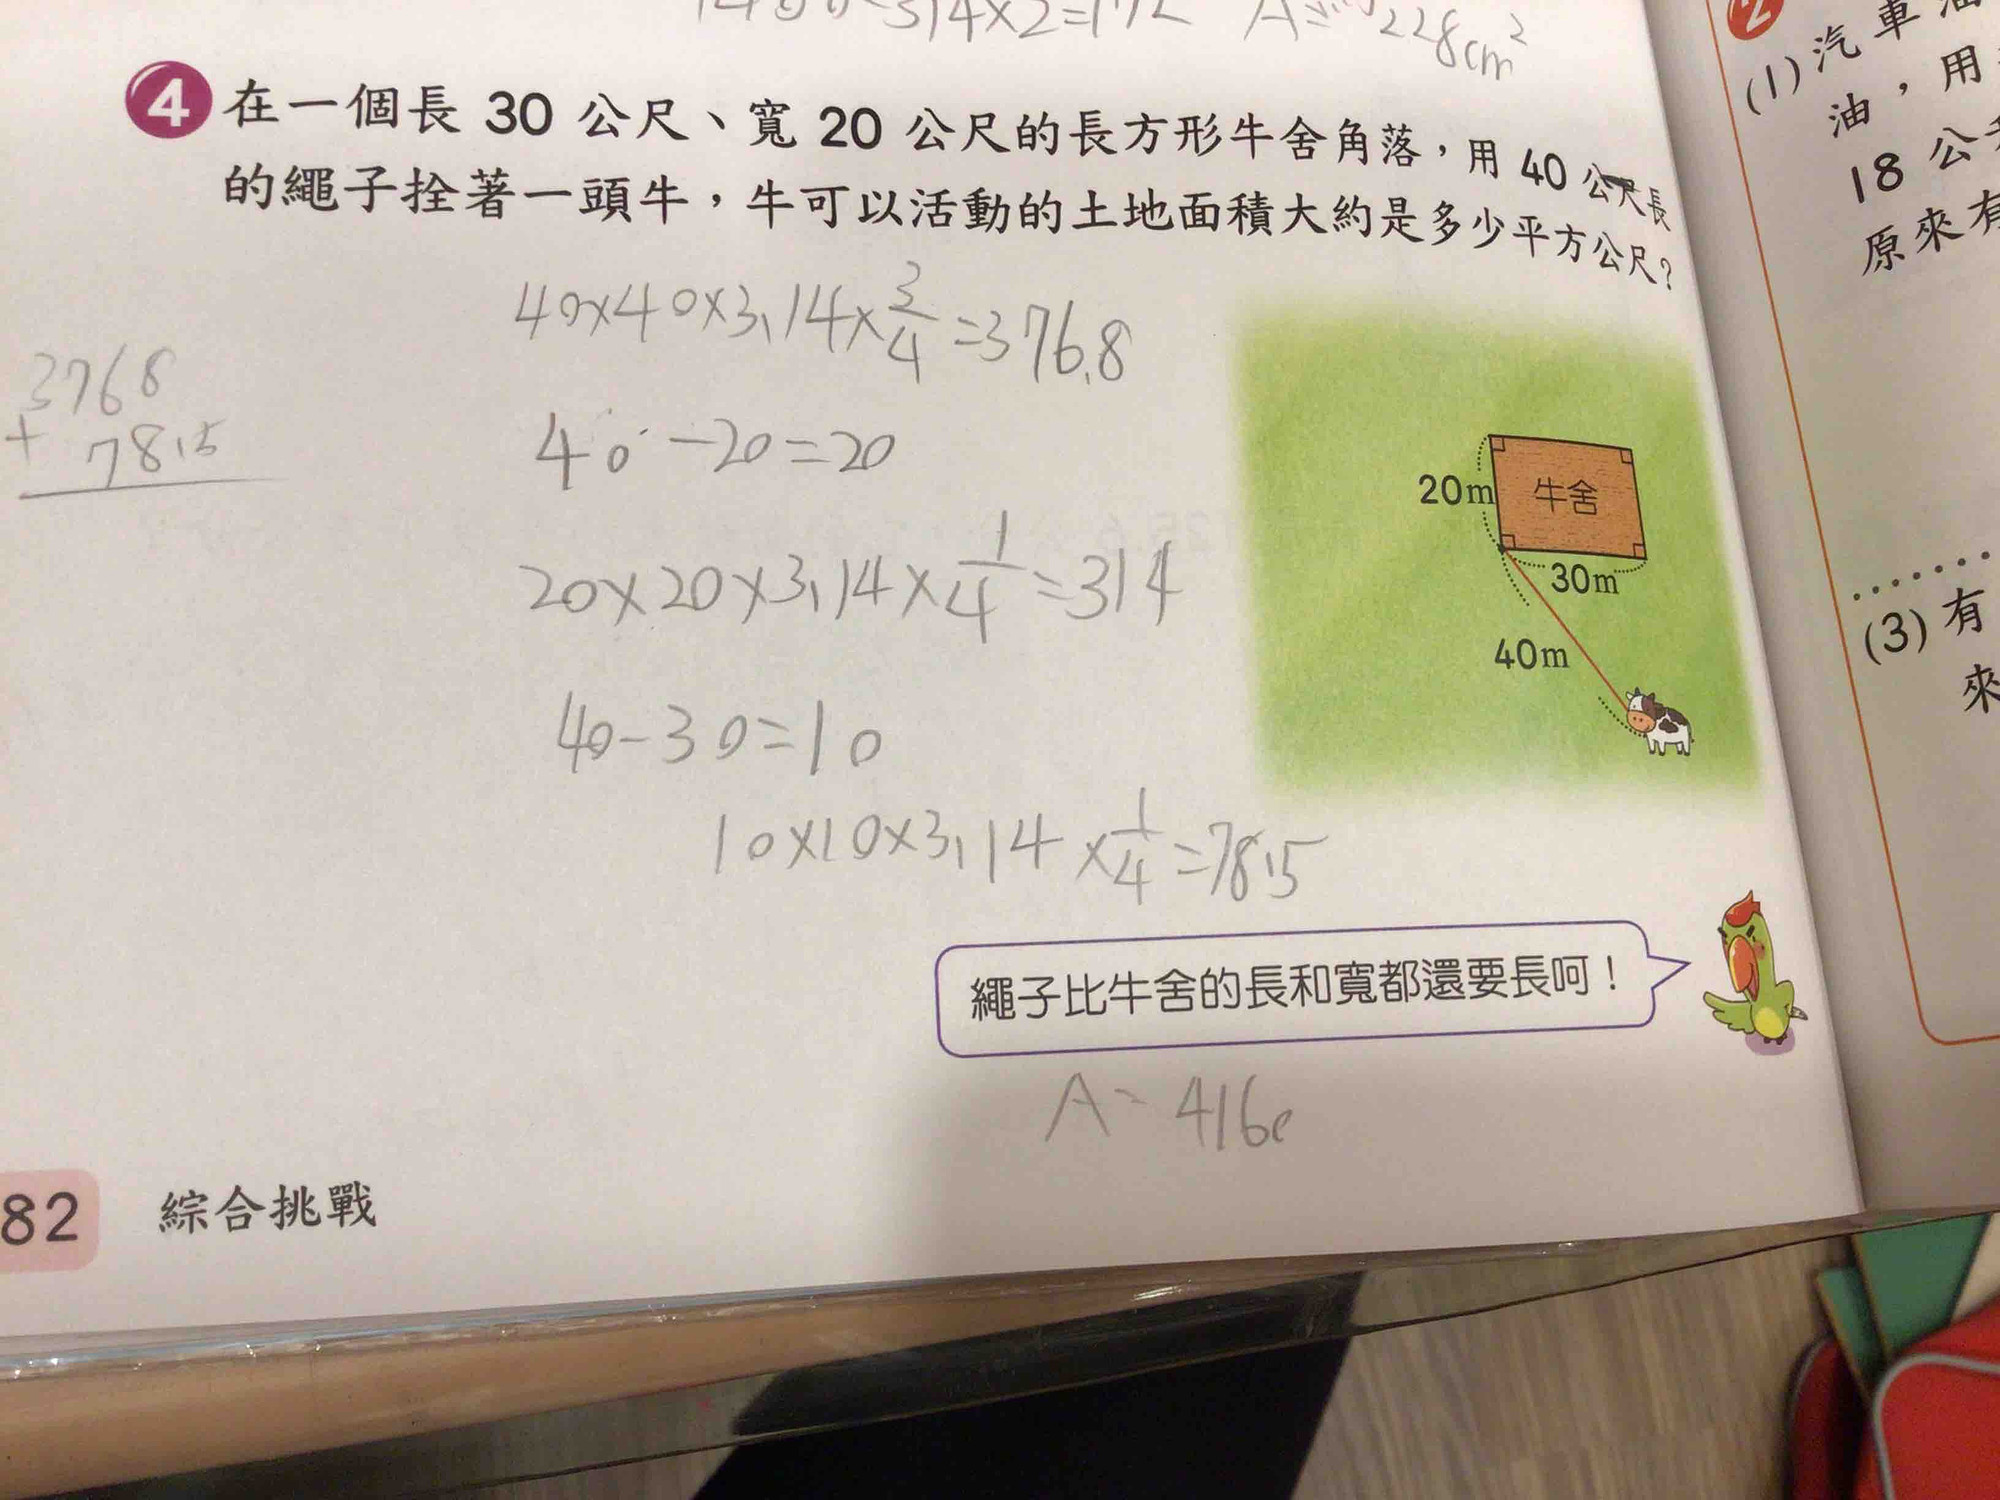 314×2=172 A= 228cm²
4 在一個長 30 公尺、寬 20 公尺的長方形牛舍角落,用 40 公尺長
的繩子拴著一頭牛,牛可以活動的土地面積大約是多少平方公尺?
40×40×3.14×3/4=376.8
3768
+ 78.5
40-20=20
20×20×3.14×1/4=314
40-30=10
10×10×3.14×1/4=78.5
20m
牛舍
30m
40m
繩子比牛舍的長和寬都還要長呵!
A= 416
82 綜合挑戰
2
(1) 汽車油
油,用
18 公升
原來有
(3) 有
來